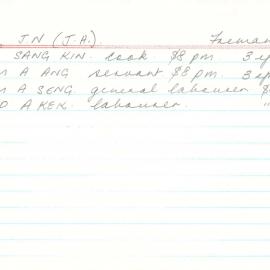 JN (J.A.). Freman
SANG KIN. cook $8 p.m. 3 y
A ANG servant $8 p.m. 3 y
A SENG general labourer $
A KEK. labourer. "